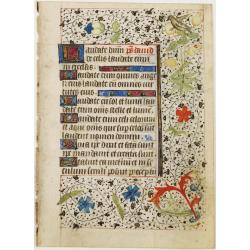 Laudate dnm ps david
de celis laudate eum
in excelsis
Laudate eum omnes angli
eius laudate eum omnes vir
tutes eius
Laudate eum sol et luna
laudate eum omnes stelle et
lumen
Laudate eum celi celorum
et aque omnes que super celos sunt
laudent nomen
Quia ipse dixit et facta sunt
ipse mandavit et creata sunt
Statuit ea in eternum et in
seculum seculi preceptu